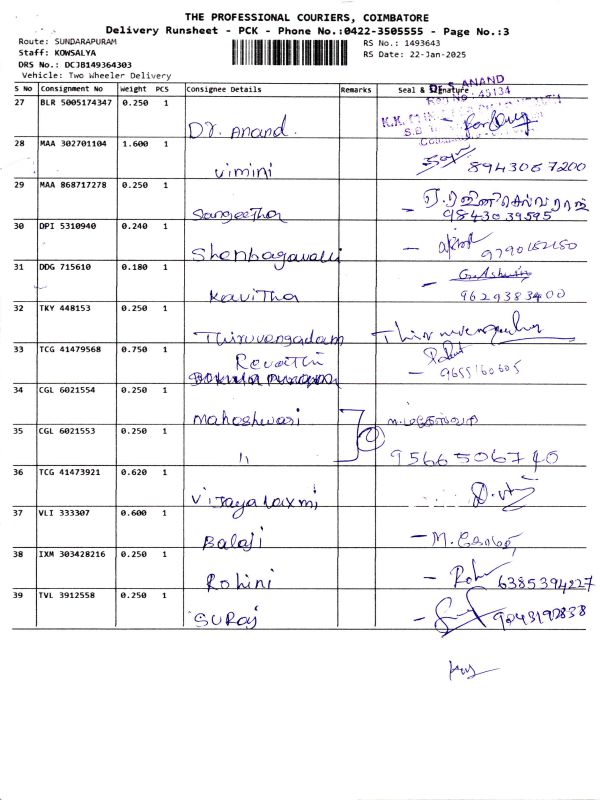 THE PROFESSIONAL COURIERS, COIMBATORE
Delivery Runsheet - PCK - Phone No.:0422-3505555 - Page No.:3
Route: SUNDARAPURAM
RS No.: 1493643
Staff: KOWSALYA
RS Date: 22-Jan-2025
DRS No.: DCJB149364303
Vehicle: Two Wheeler Delivery
S No Consignment No Weight PCS Consignee Details Remarks Seal & Signature
Dr. S. ANAND
Reg No: 45134
27 BLR 5005174347 0.250 1
Dr. Anand.
28 MAA 302701104 1.600 1
Vimini 8943067200
29 MAA 868717278 0.250 1
Sangeetha 9843039595
30 DPI 5310940 0.240 1
Shenbagavalli 9790182180
31 DDG 715610 0.180 1
Kavitha 9629383400
32 TKY 448153 0.250 1
Thiruvengadam
33 TCG 41479568 0.750 1
Revathi
9655160605
34 CGL 6021554 0.250 1
Maheshwari ம.மகேஸ்வரி
35 CGL 6021553 0.250 1
11 9566506740
36 TCG 41473921 0.620 1
Vijayalaxmi
37 VLI 333307 0.600 1
Balaji
38 IXM 303428216 0.250 1
Rohini 6385394227
39 TVL 3912558 0.250 1
Suraj 9043192838